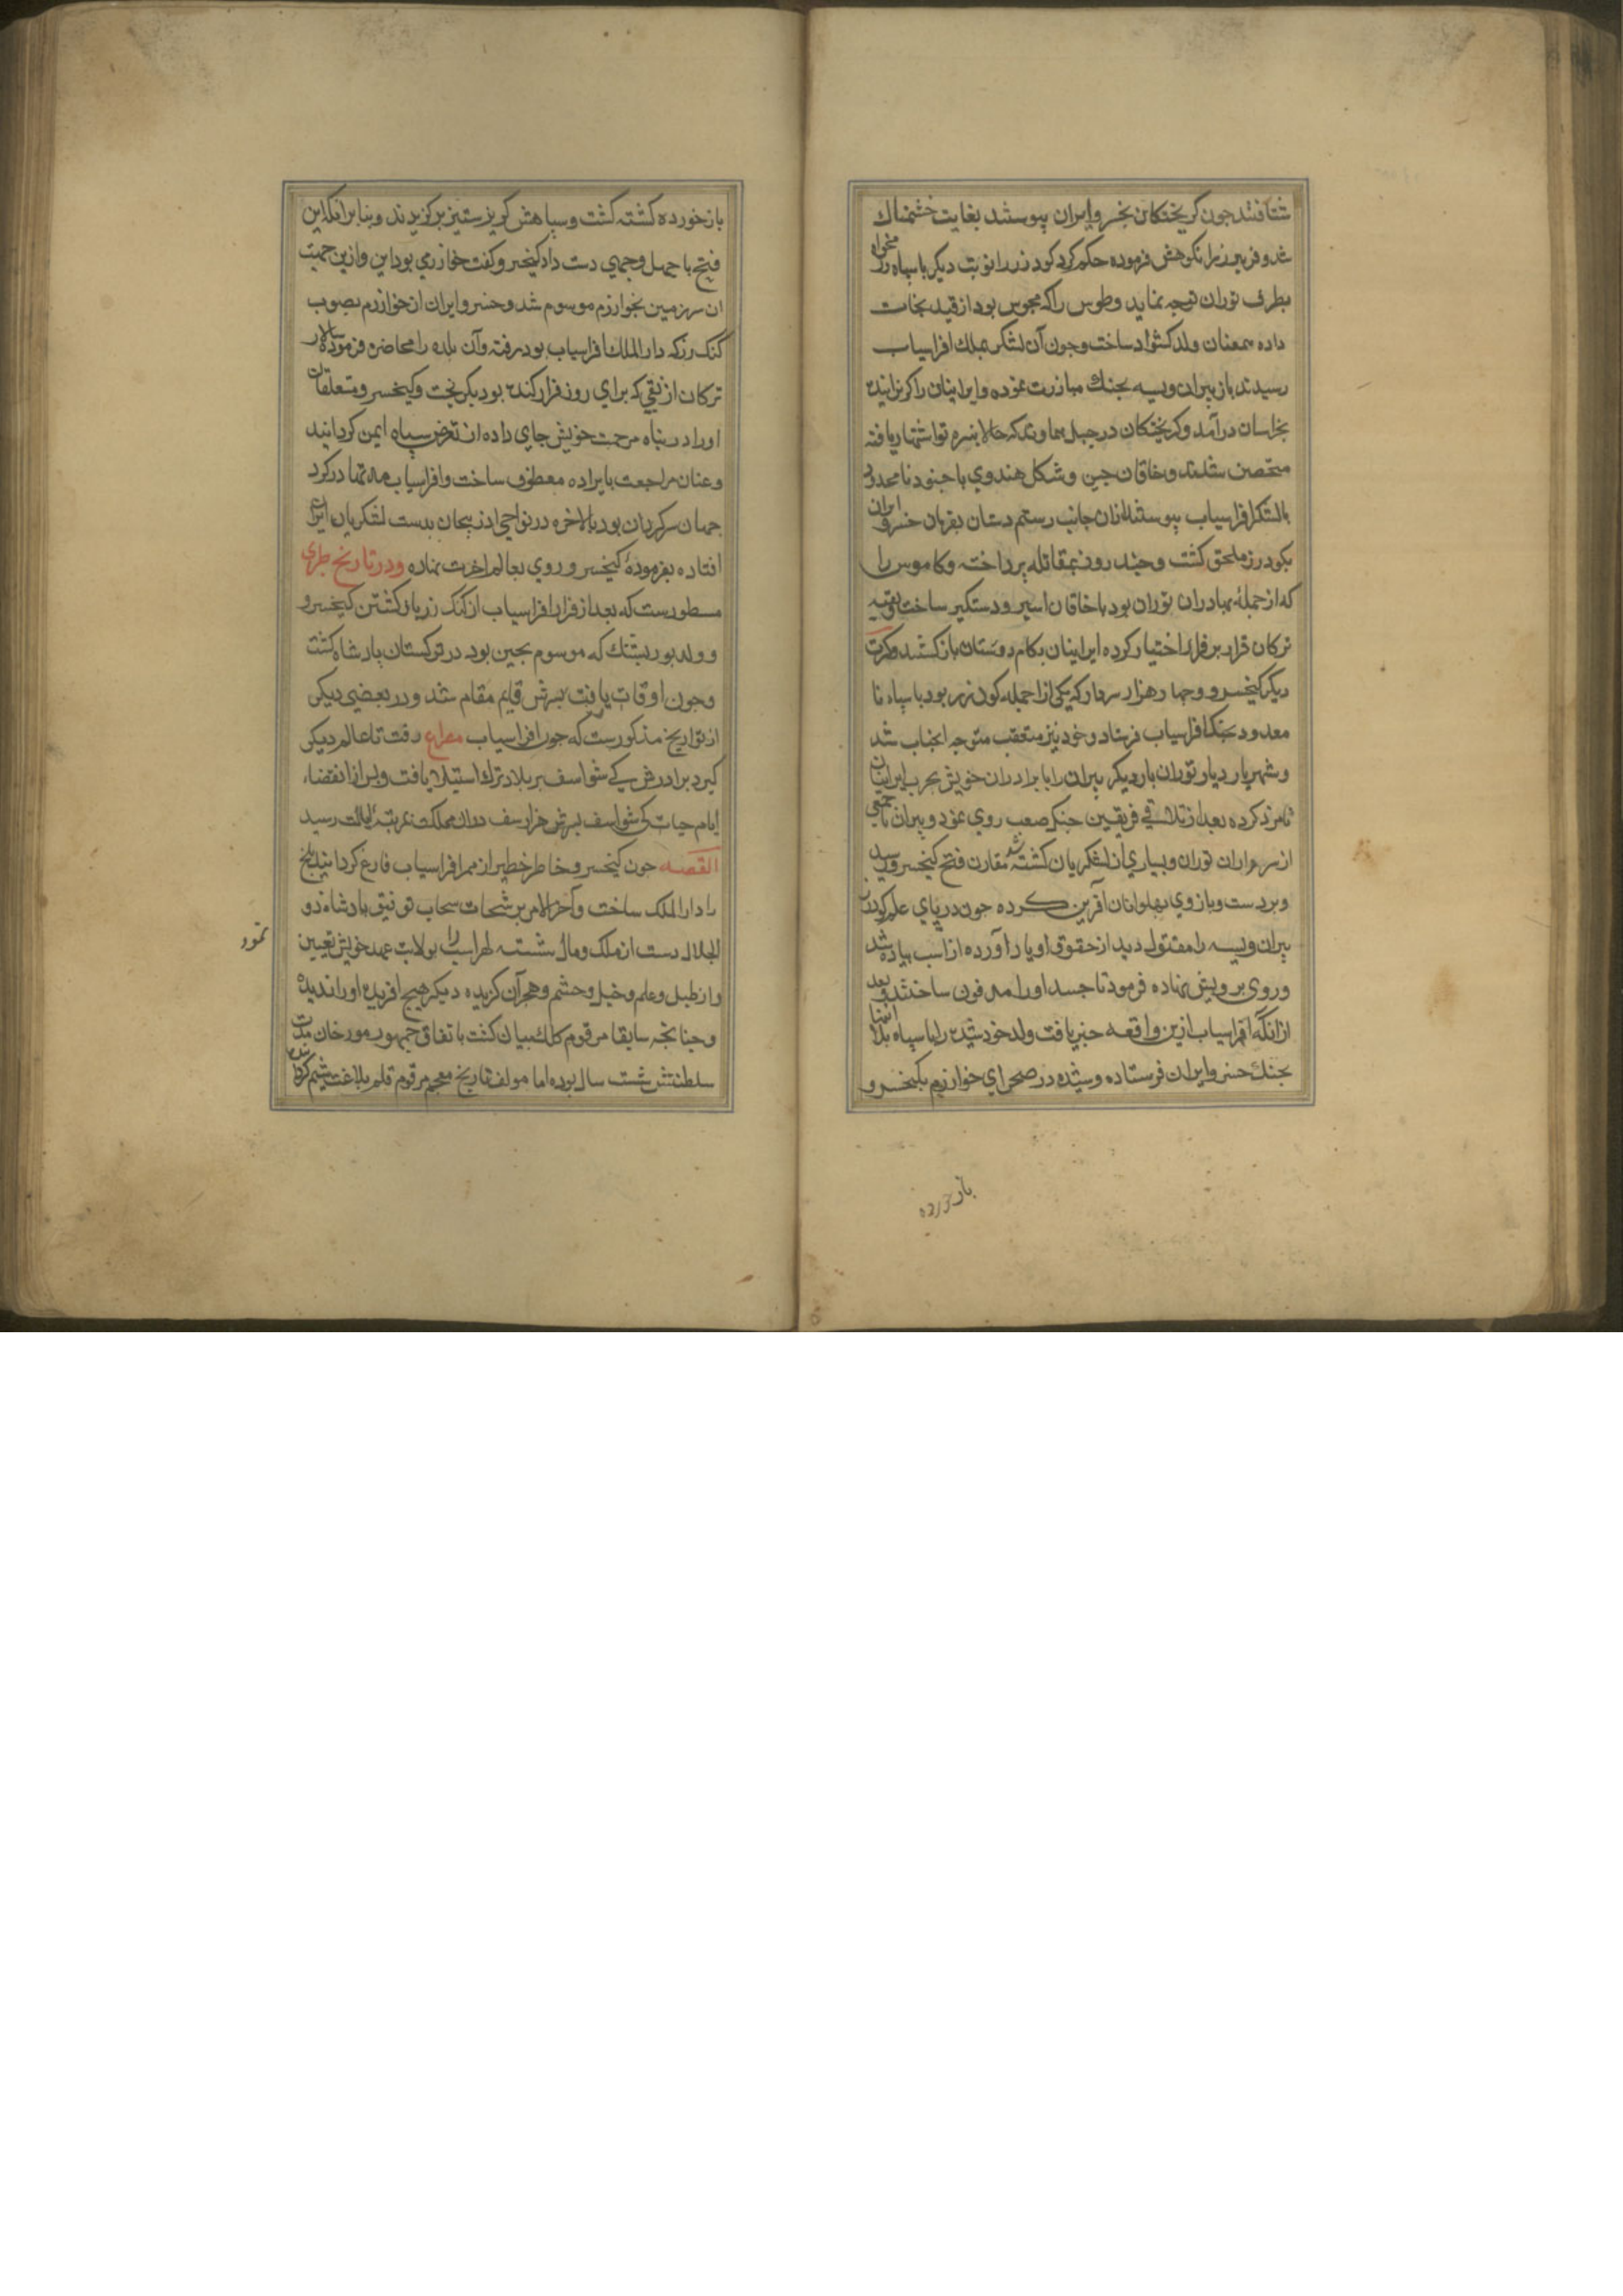 شتافتند جون کریختکان بخسرو ایران پیوستند بغایت خشمناک
شد و فریبرز را نکوهش فرموده حکم کرد کودرز را نوبت دیکر با سپاه رزمخواه
بطرف توران توجه نماید و طوس را که محبوس بود از قید نجات
داده همعنان ولد کشواد ساخت و جون آن لشکر بملک افراسیاب
رسیدند باز پیران ویسه بجنک مبازرت نموده و ایرانیان را کریزانیده
بخراسان درآمد و کریختکان در جبل هماوند که حالا بنبره تو اشتهار یافته
متحصن شدند و خاقان جین و شنکل هندوی با جنود نامحدود
بالشکر افراسیاب پیوستند از آن جانب رستم دستان بفرمان خسرو ایران
بکودرز ملحق کشت و جند روز بمقاتله پرداخت و کاموس را
که از جملهٔ بهادران توران بود با خاقان اسیر و دستکیر ساخت و بقیه
ترکان قرار بر فرار اختیار کرده ایرانیان بکام دوستان بازکشتند و کرت
دیکر کیخسرو و جهار هزار سردار که یکی از انجمله کودرز بود با سپاه نا
معدود بجنک افراسیاب فرستاد و خود نیز متعقب متوجه انجناب شد
و شهریار دیار توران بار دیکر پیران را با برادران خویش بحرب ایرانیان
نامزد کرده بعد از تلاقی فریقین جنک صعب روی نمود و پیران با جمعی
از سرداران توران و بسیاری از لشکریان کشته شد مقارن فتح کیخسرو رسید
و بر دست و بازوی بهلوانان آفرین کرده جون در پای علم کودرز
پیران ویسه را مقتول دید از حقوق او یاد آورده از اسب پیاده شد
و روی بر رویش نهاده فرمود تا جسد او را مدفون ساختند و بعد
از آنکه افراسیاب ازین واقعه خبر یافت ولد خود شیده را با سپاه بلا انتها
بجنک خسرو ایران فرستاده و شیده در صحرای خوارزم بکیخسرو
باز خورده
باز خورده کشته کشت و سپاهش کریز بر ستیز برکزیدند و بنابر انکه این
فتح با جهل وجهی دست داد کیخسرو کفت خوار رزمی بود این و ازین جهت
ان سرزمین بخوارزم موسوم شد و خسرو ایران از خوارزم بصوب
کنک دز که دار الملک افراسیاب بود رفته وآن بلده را محاصره فرموده سالار
ترکان از نقبی که برای روز فرار کنده بود بکریخت و کیخسرو متعلقان
او را در پناه مرحمت خویش جای داده از تعرض سپاه ایمن کردانید
و عنان مراجعت بایران معطوف ساخت و افراسیاب مدتها در کرد
جهان سرکردان بود بالاخره در نواحی اذربیجان بدست لشکریان ایران
افتاده بفرمودهٔ کیخسرو روی بعالم اخرت نهاده و در تاریخ طبری
مسطورست که بعد از فرار افراسیاب از کنک دز باز کشتن کیخسرو
و ولد بور بشنک که موسوم بجین بود در ترکستان پادشاه کشت
و جون اوقات یافت پسرش قایم مقام شد و در بعضی دیکر
از تواریخ مذکورست که جون افراسیاب مصراع رفت تا عالم دیکر
کیرد برادرش کی شواسف بر بلاد ترک استیلا یافت و پس از انقضاء
ایام حیات کی شواسف پسرش خرزاسف دران مملکت بمرتبه ایالت رسید
القصه جون کیخسرو خاطر خطیر از مر افراسیاب فارغ کردانید بلخ
را دار الملک ساخت و آخر الامر برشحات سحاب توفیق پادشاه ذو
الجلال دست از ملک و مال شسته لهراسب را بولایت عهد خویش تعیین
نمود
و از طبل و علم و خیل و حشم و هجران کزیده دیکر هیج افریده او را ندیده
و جنانجه سابقا مرقوم کلک بیان کشت باتفاق جمهور مورخان مدت
سلطنتش شست سال بوده اما مولف تاریخ معجم مرقوم قلم بلاغت شیم کردانیده